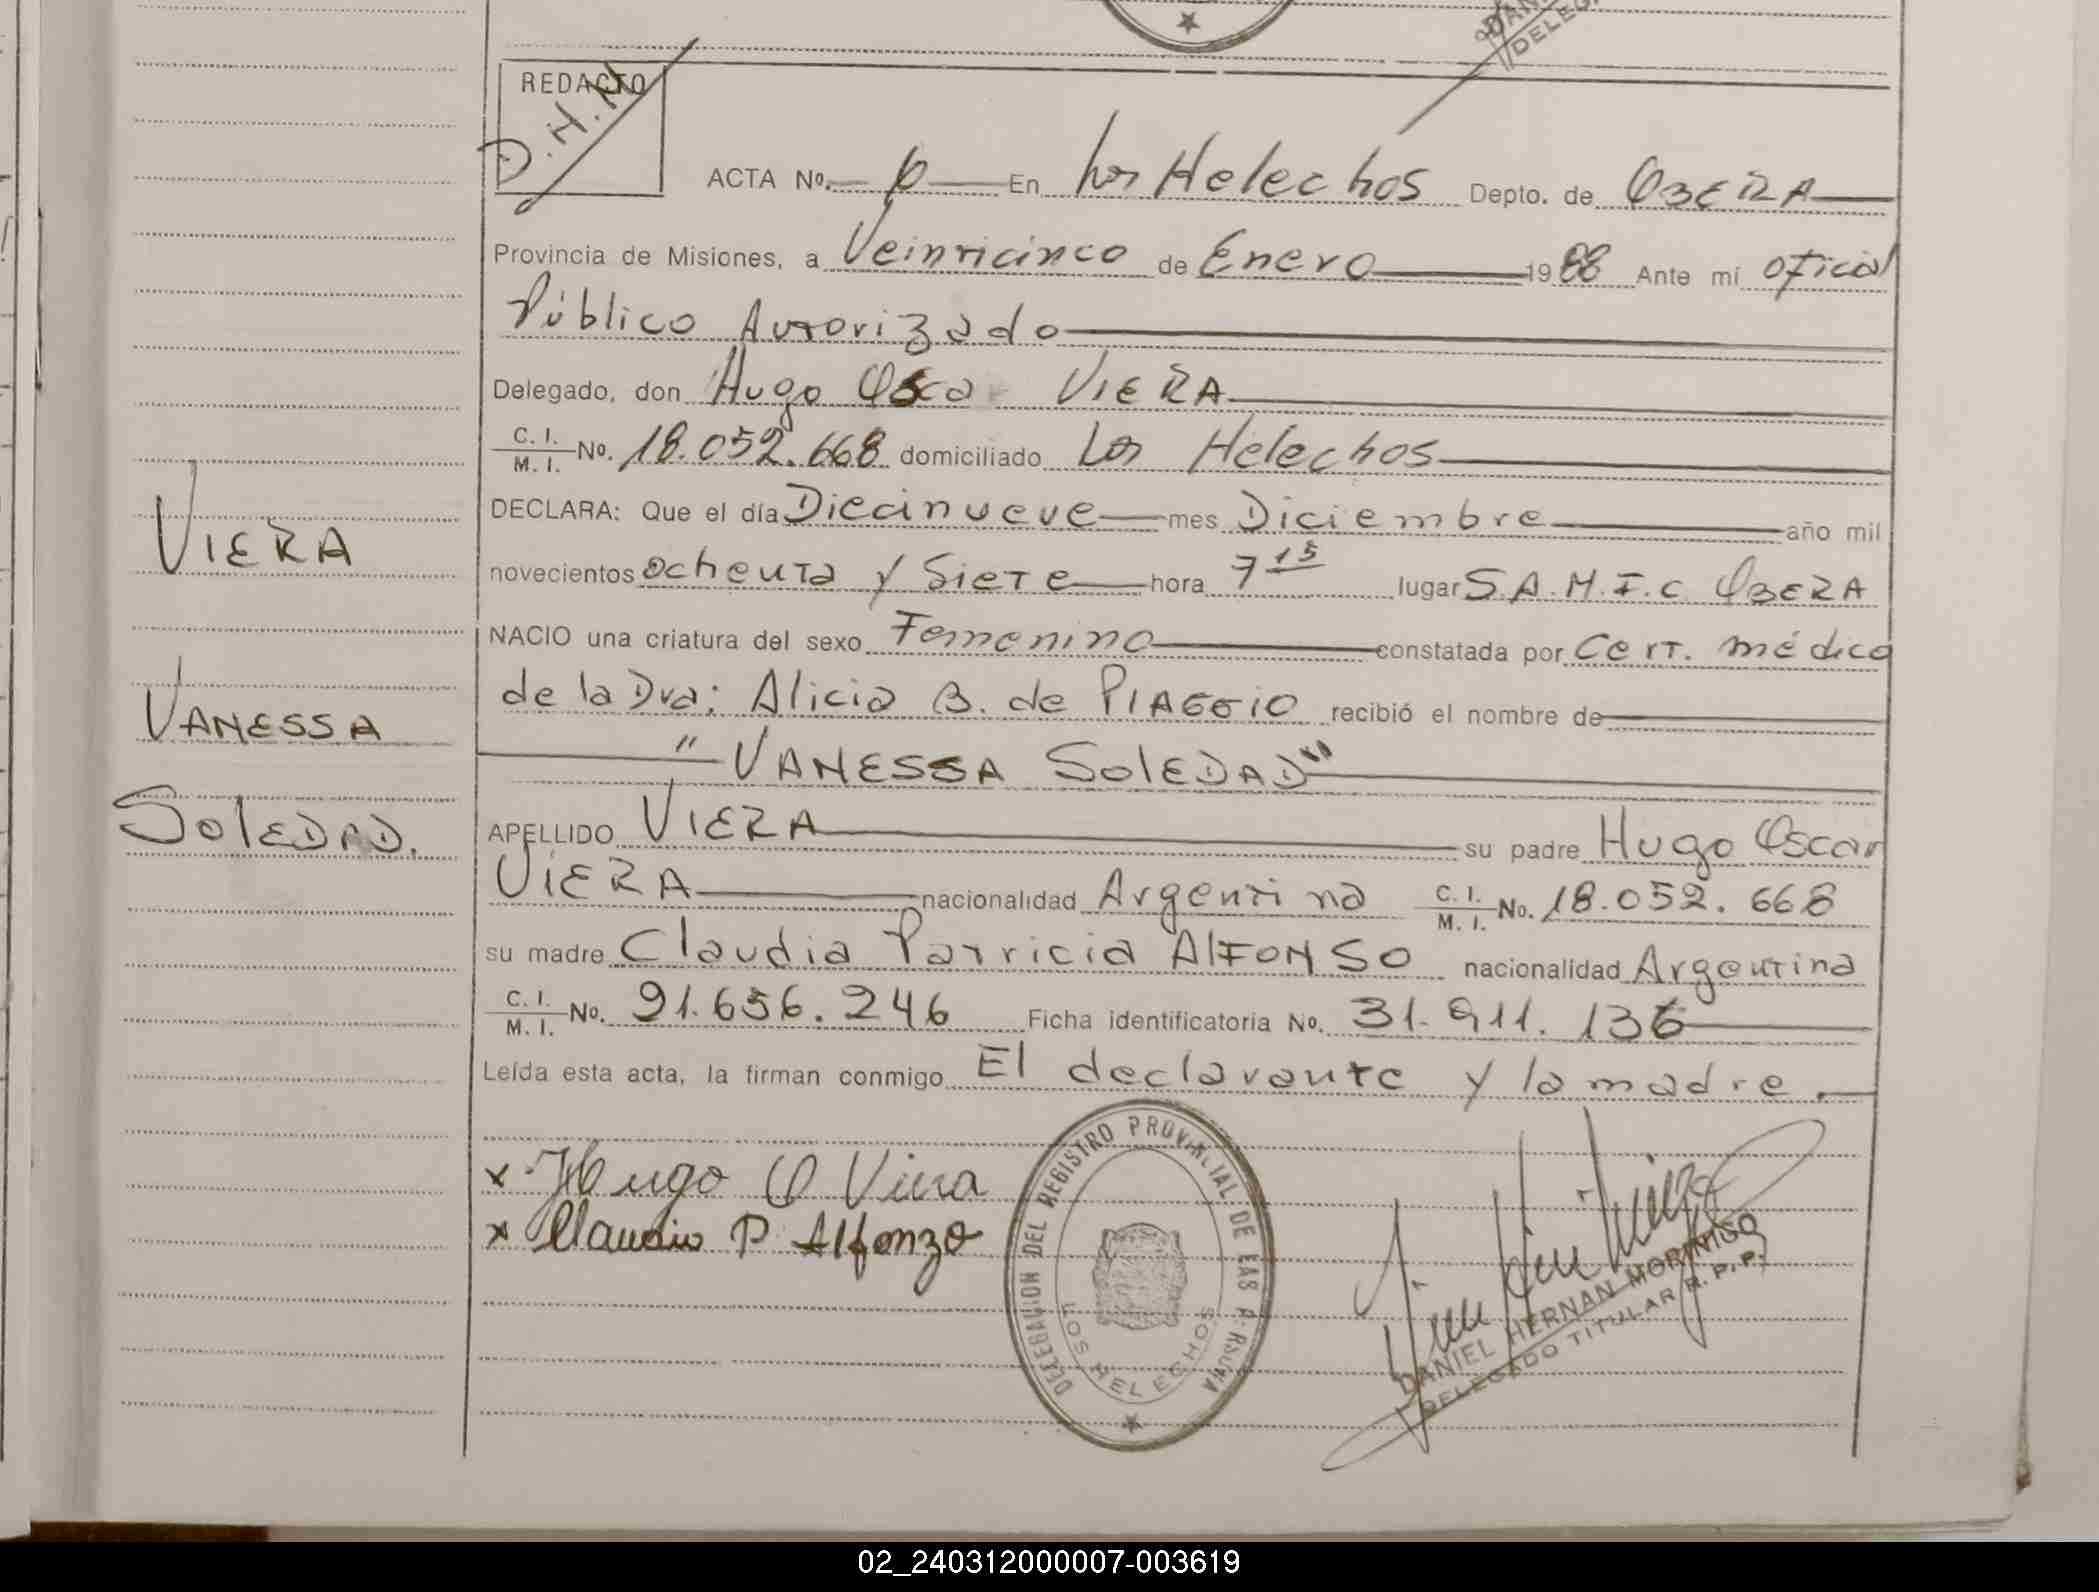 DANI
DELEG
REDACTO
D.H.M
ACTA No. En Los Helechos Depto. de OBERA
Provincia de Misiones, a Veinticinco de Enero 1988 Ante mí oficial
Público Autorizado
Delegado, don Hugo Osca VIERA
C. I. / M. I. No. 18.052.668 domiciliado Los Helechos
DECLARA: Que el día Diecinueve mes Diciembre año mil
novecientos ochenta y Siete hora 7 15 lugar S.A.M.I.C OBERA
NACIO una criatura del sexo Femenino constatada por Cert. médico
de la Dra: Alicia B. de PIAGGIO recibió el nombre de
"VANESSA SOLEDAD"
APELLIDO VIERA su padre Hugo Oscar
VIERA nacionalidad Argentina C. I. / M. I. No. 18.052.668
su madre Claudia Patricia ALFONSO nacionalidad Argentina
C. I. / M. I. No. 91.656.246 Ficha identificatoria No. 31.911.136
Leída esta acta, la firman conmigo El declarante y la madre.
x Hugo O Viera
x Claudia P. Alfonzo
VIERA
VANESSA
SOLEDAD.
DELEGACION DEL REGISTRO PROVINCIAL DE LAS P
LOS HELECHOS
DANIEL HERNAN MORINIGO
DELEGADO TITULAR R. P. P.
02_240312000007-003619